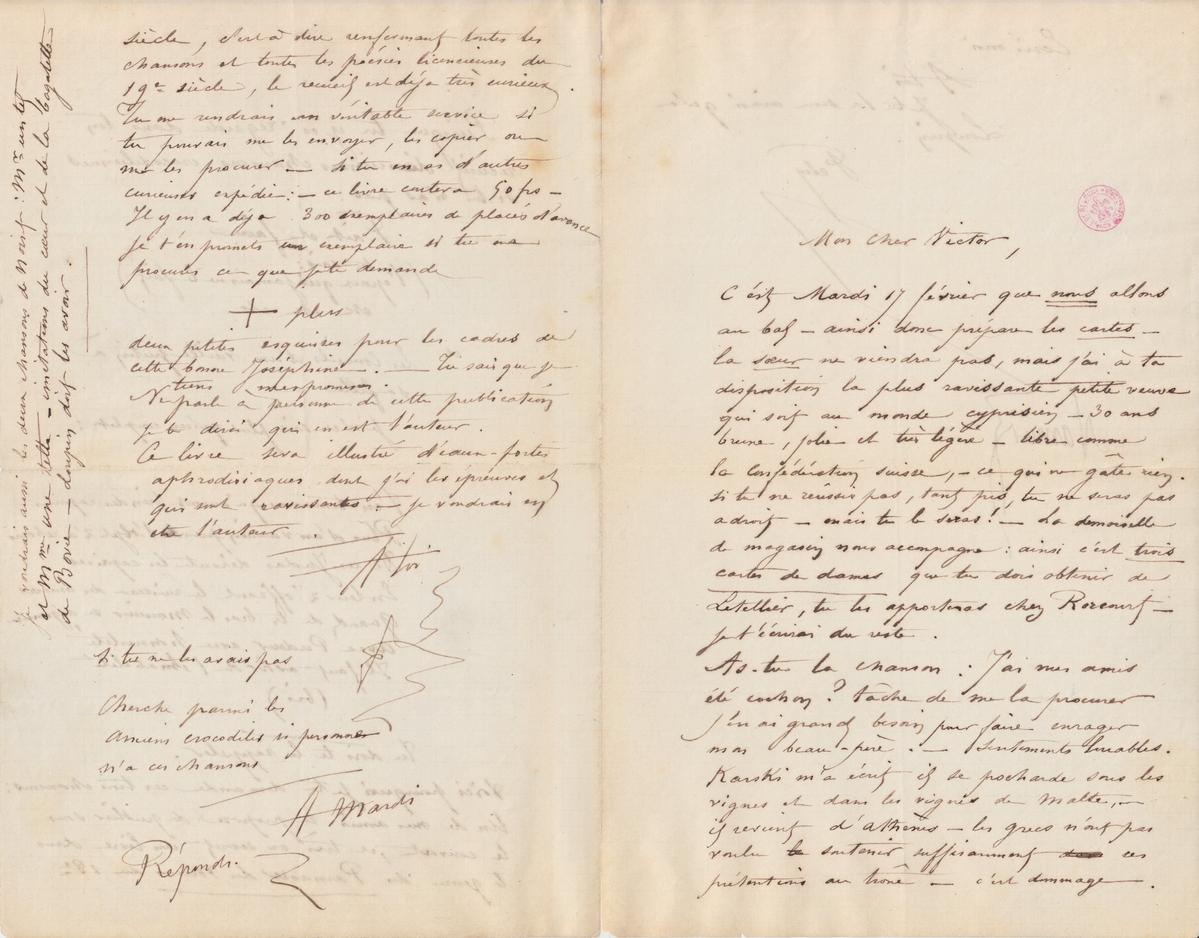 Mon cher Victor,
C'est Mardi 17 février que nous allons
au bal – ainsi donc prépare les cartes –
la sœur ne viendra pas, mais j'ai à ta
disposition la plus ravissante petite veuve
qui soit au monde cyprisien – 30 ans
brune, jolie et très légère – libre comme
la confédération suisse, – ce qui ne gâte rien.
si tu ne réussis pas, tant pis, tu ne seras pas
adroit – mais tu le seras! – La demoiselle
de magasin nous accompagne : ainsi c'est trois
cartes de dames que tu dois obtenir de
Letellier, tu les apporteras chez Rozcourt –
je t'écrirai du reste.
As-tu la chanson : J'ai mes amis
été cochon ? tâche de me la procurer
j'en ai grand besoin pour faire enrager
mon beau-père. – Sentiments louables.
Karski m'a écrit il se pocharde sous les
vignes et dans les vignes de Malte, –
il revient d'athènes – les grecs n'ont pas
voulu soutenir suffisamment ces
prétentions au trône – c'est dommage –.
siècle, c'est à dire renfermant toutes les
chansons et toutes les poésies licencieuses du
19e siècle, le recueil est déja très curieux.
Tu me rendrais un véritable service si
tu pouvais me les envoyer, les copier ou
me les procurer – si tu en as d'autres
curieuses expédie : – ce livre contera 50 frs –
Il y en a déja 300 exemplaires de placés d'avance
je t'en promets un exemplaire si tu me
procures ce que je te demande
+ plus
deux petites esquisses pour les cadres de
cette bonne Joséphine. – Tu sais que je
tiens mes promesses.
Ne parle à personne de cette publication
je te dirai qui en est l'auteur.
Ce livre sera illustré d'eaux-fortes
aphrodisiaques dont j'ai les épreuves et
qui sont ravissantes – je voudrais en
être l'auteur.
A toi
Si tu ne les avais pas
Cherche parmi les
anciens crocodiles si personne
n'a ces chansons
A Mardi
Réponds.
Je voudrais aussi les deux chansons de Noirt : Mr un tel
et Mme une telle – imitations du cœur et de la bagatelle
de Borie – loupin doit les avoir.